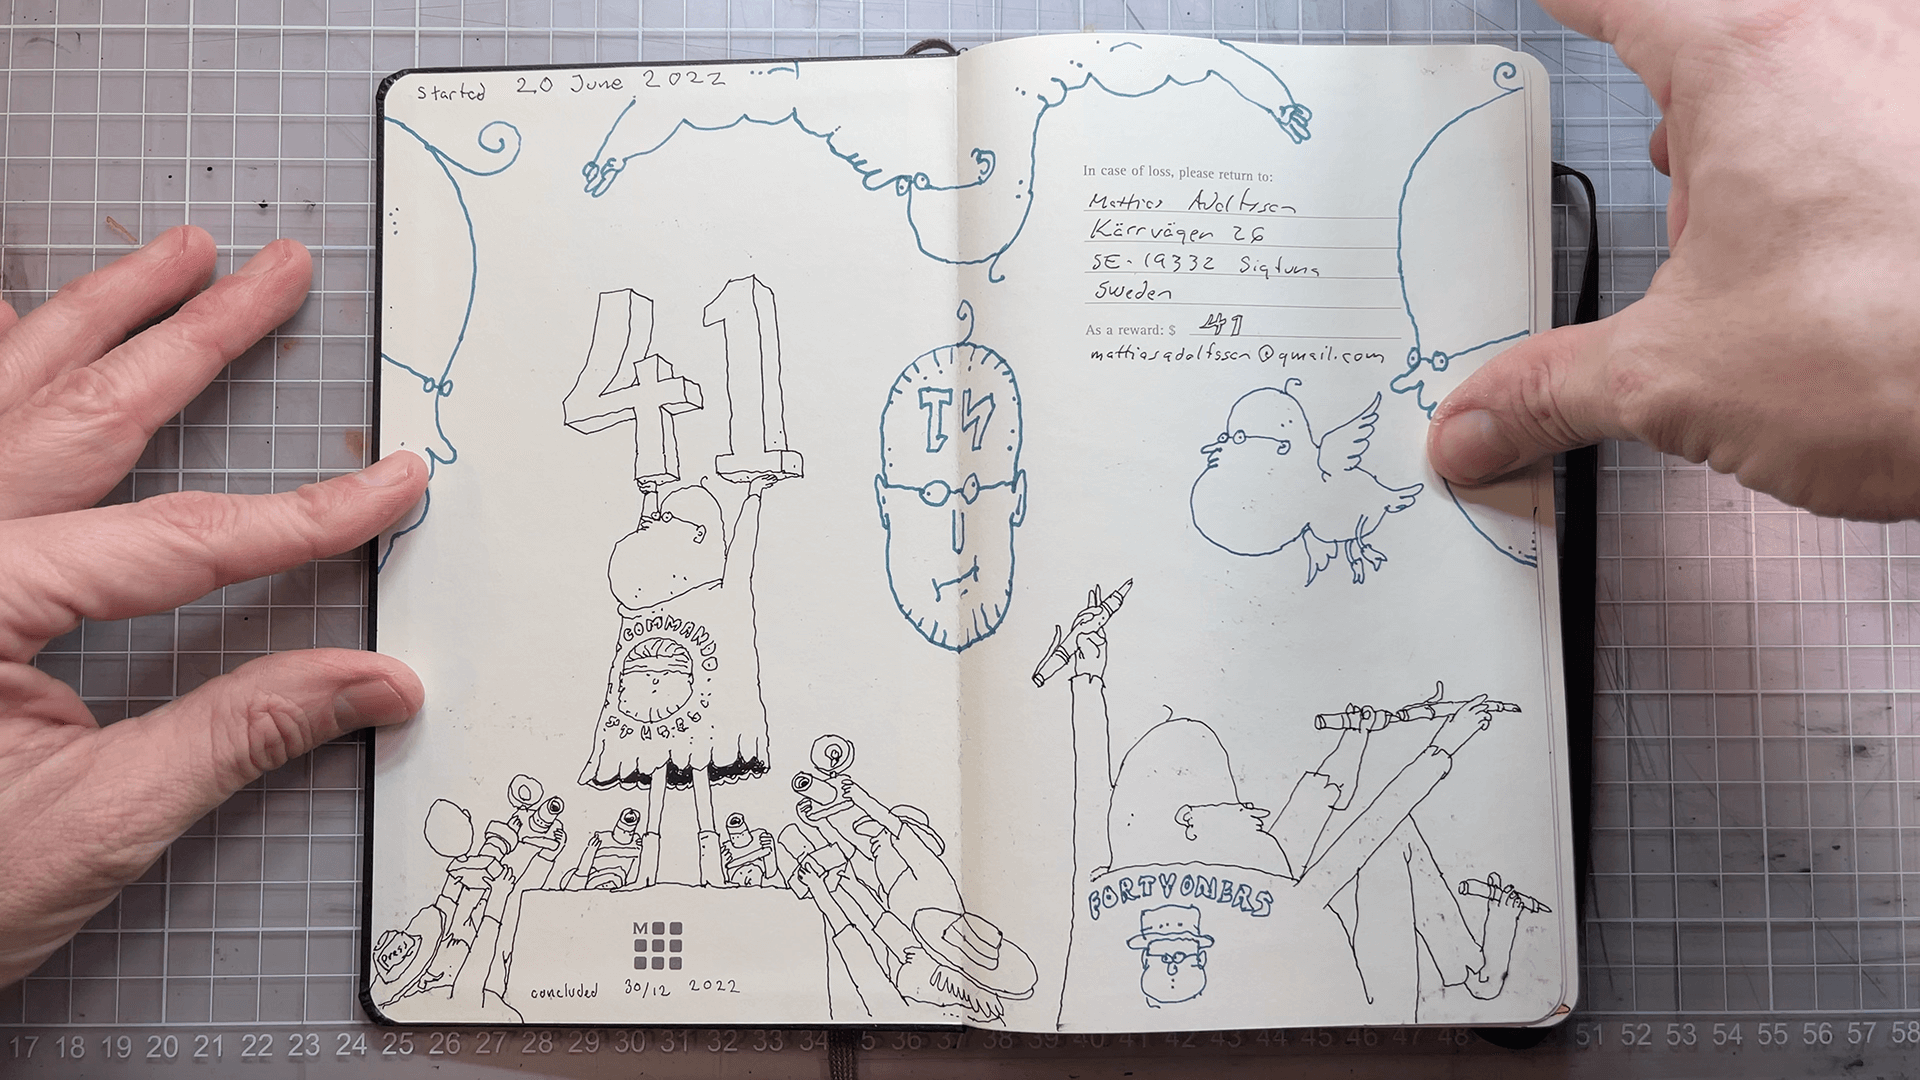 Started 20 June 2022
In case of loss, please return to:
Mattias Adolfsson
Kärrvägen 26
SE-19332 Sigtuna
Sweden
As a reward: $ 41
mattiasadolfsson@gmail.com
41
COMMANDO
FORTYONERS
Press
M
concluded 30/12 2022
17 18 19 20 21 22 23 24 25 26 27 28 29 30 31 32 33 34 35 36 37 38 39 40 41 42 43 44 45 46 47 48 51 52 53 54 55 56 57 58